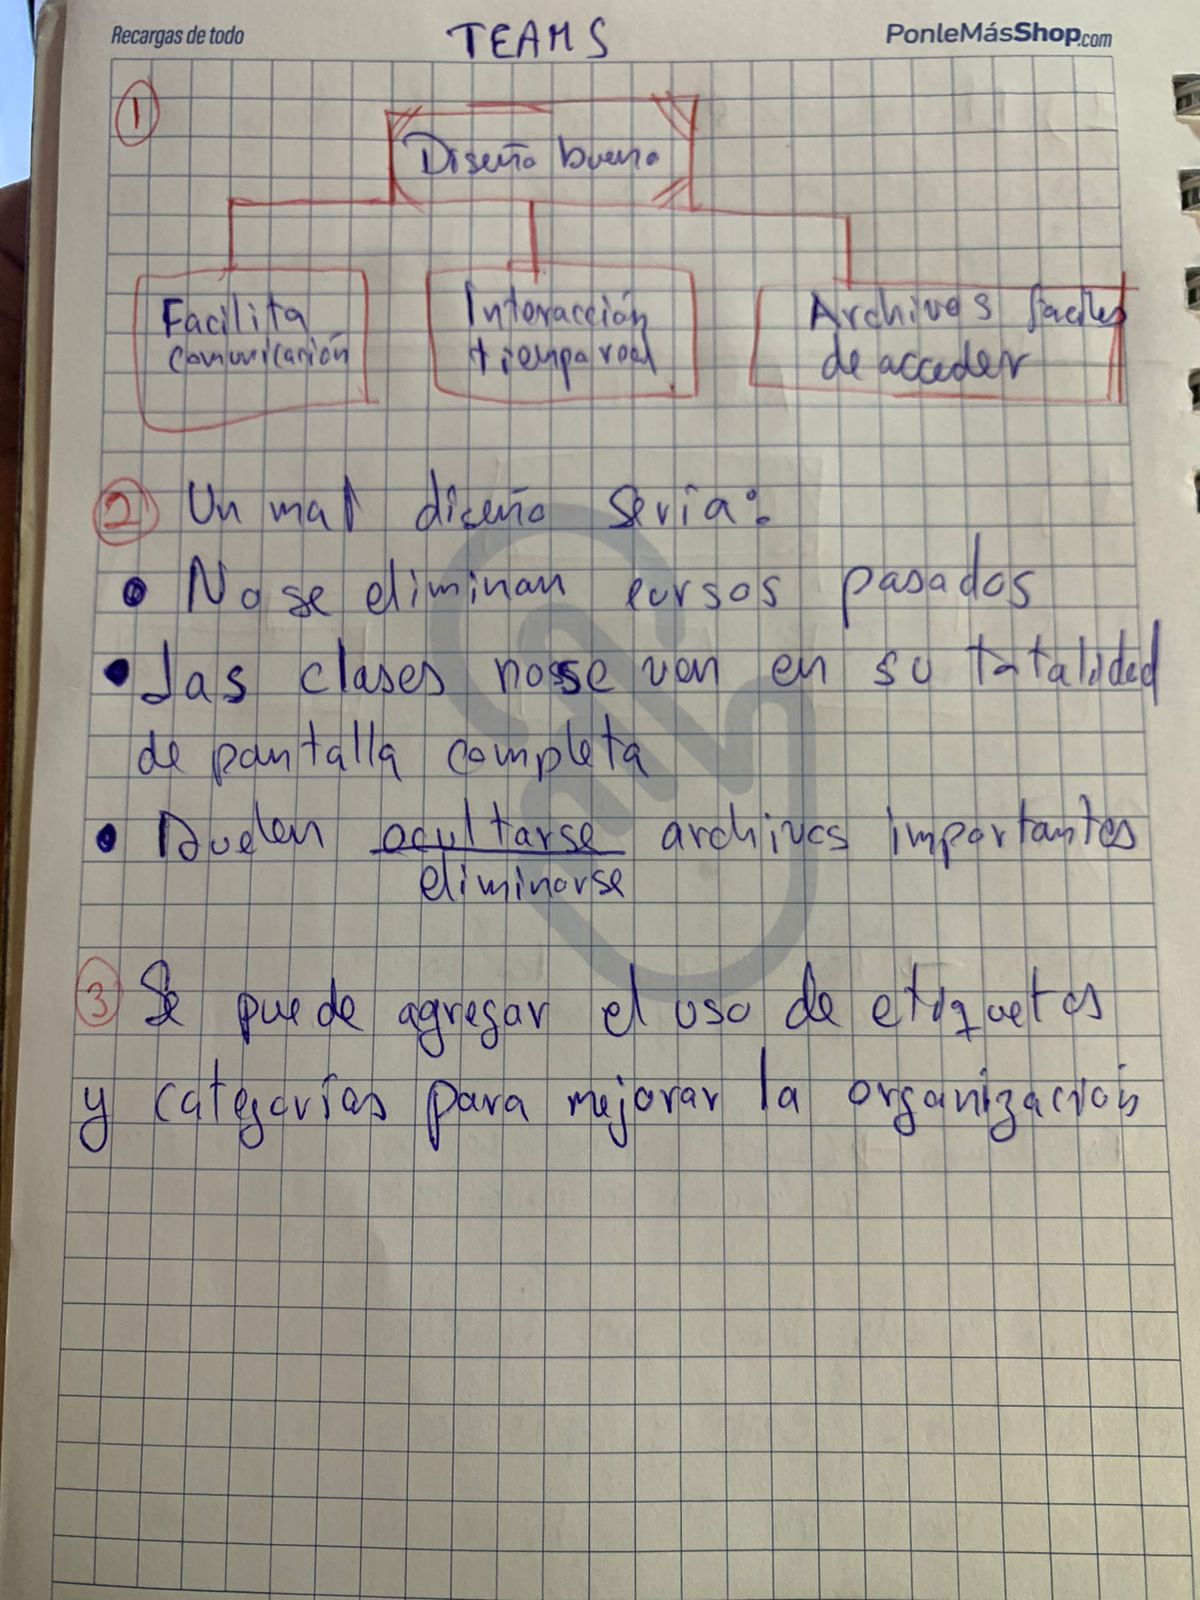 Recargas de todo
TEAMS
PonleMásShop.com
1
Diseño bueno
Facilita
comunicación
Interacción
tiempo real
Archivos faciles
de acceder
2 Un mal diseño sería:
• No se eliminan cursos pasados
• Las clases no se ven en su totalidad
de pantalla completa
• Suelen ocultarse archivos importantes
eliminarse
3 Se puede agregar el uso de etiquetas
y categorías para mejorar la organización